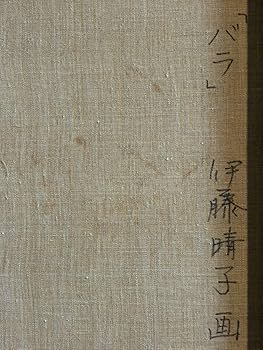 「バラ」 伊藤晴子画